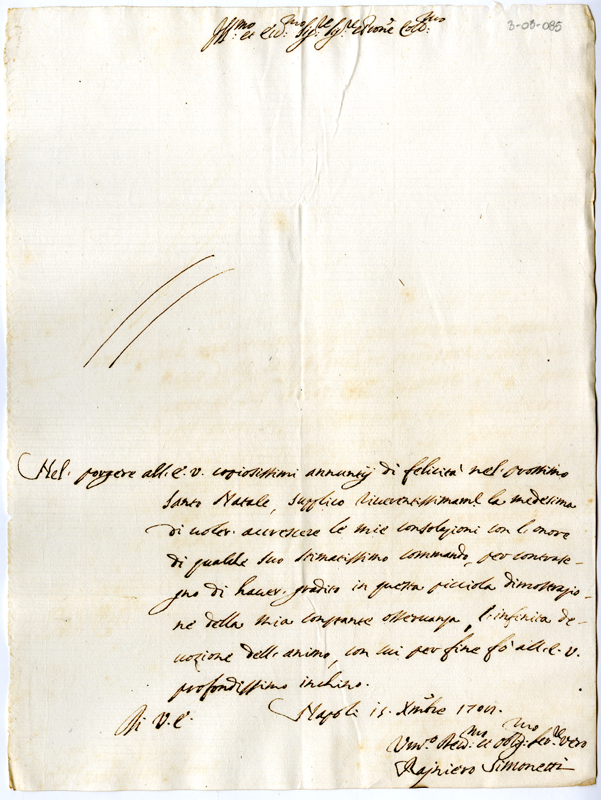 Ill.mo et Ecc.mo Sig.re Sig.re Prone Coll.mo
3-03-085
Nel porgere all'E. V. copiosissimi annuntij di felicità nel prossimo
Santo Natale, supplico riverentissimam.te la medesima
di voler accrescere le mie consolazioni con l'onore
di qualche suo stimatissimo commando, per contrase-
gno di haver gradito in questa picciola dimostrazio-
ne della mia constante osservanza, l'infinita de-
vozione dell'animo, con cui per fine fò all'E. V.
profondissimo inchino.
Napoli 15. Xmbre 170
Di V. E.
Vmo. Devmo. et Oblig.mo Ser.re vero
Rajniero Simonetti